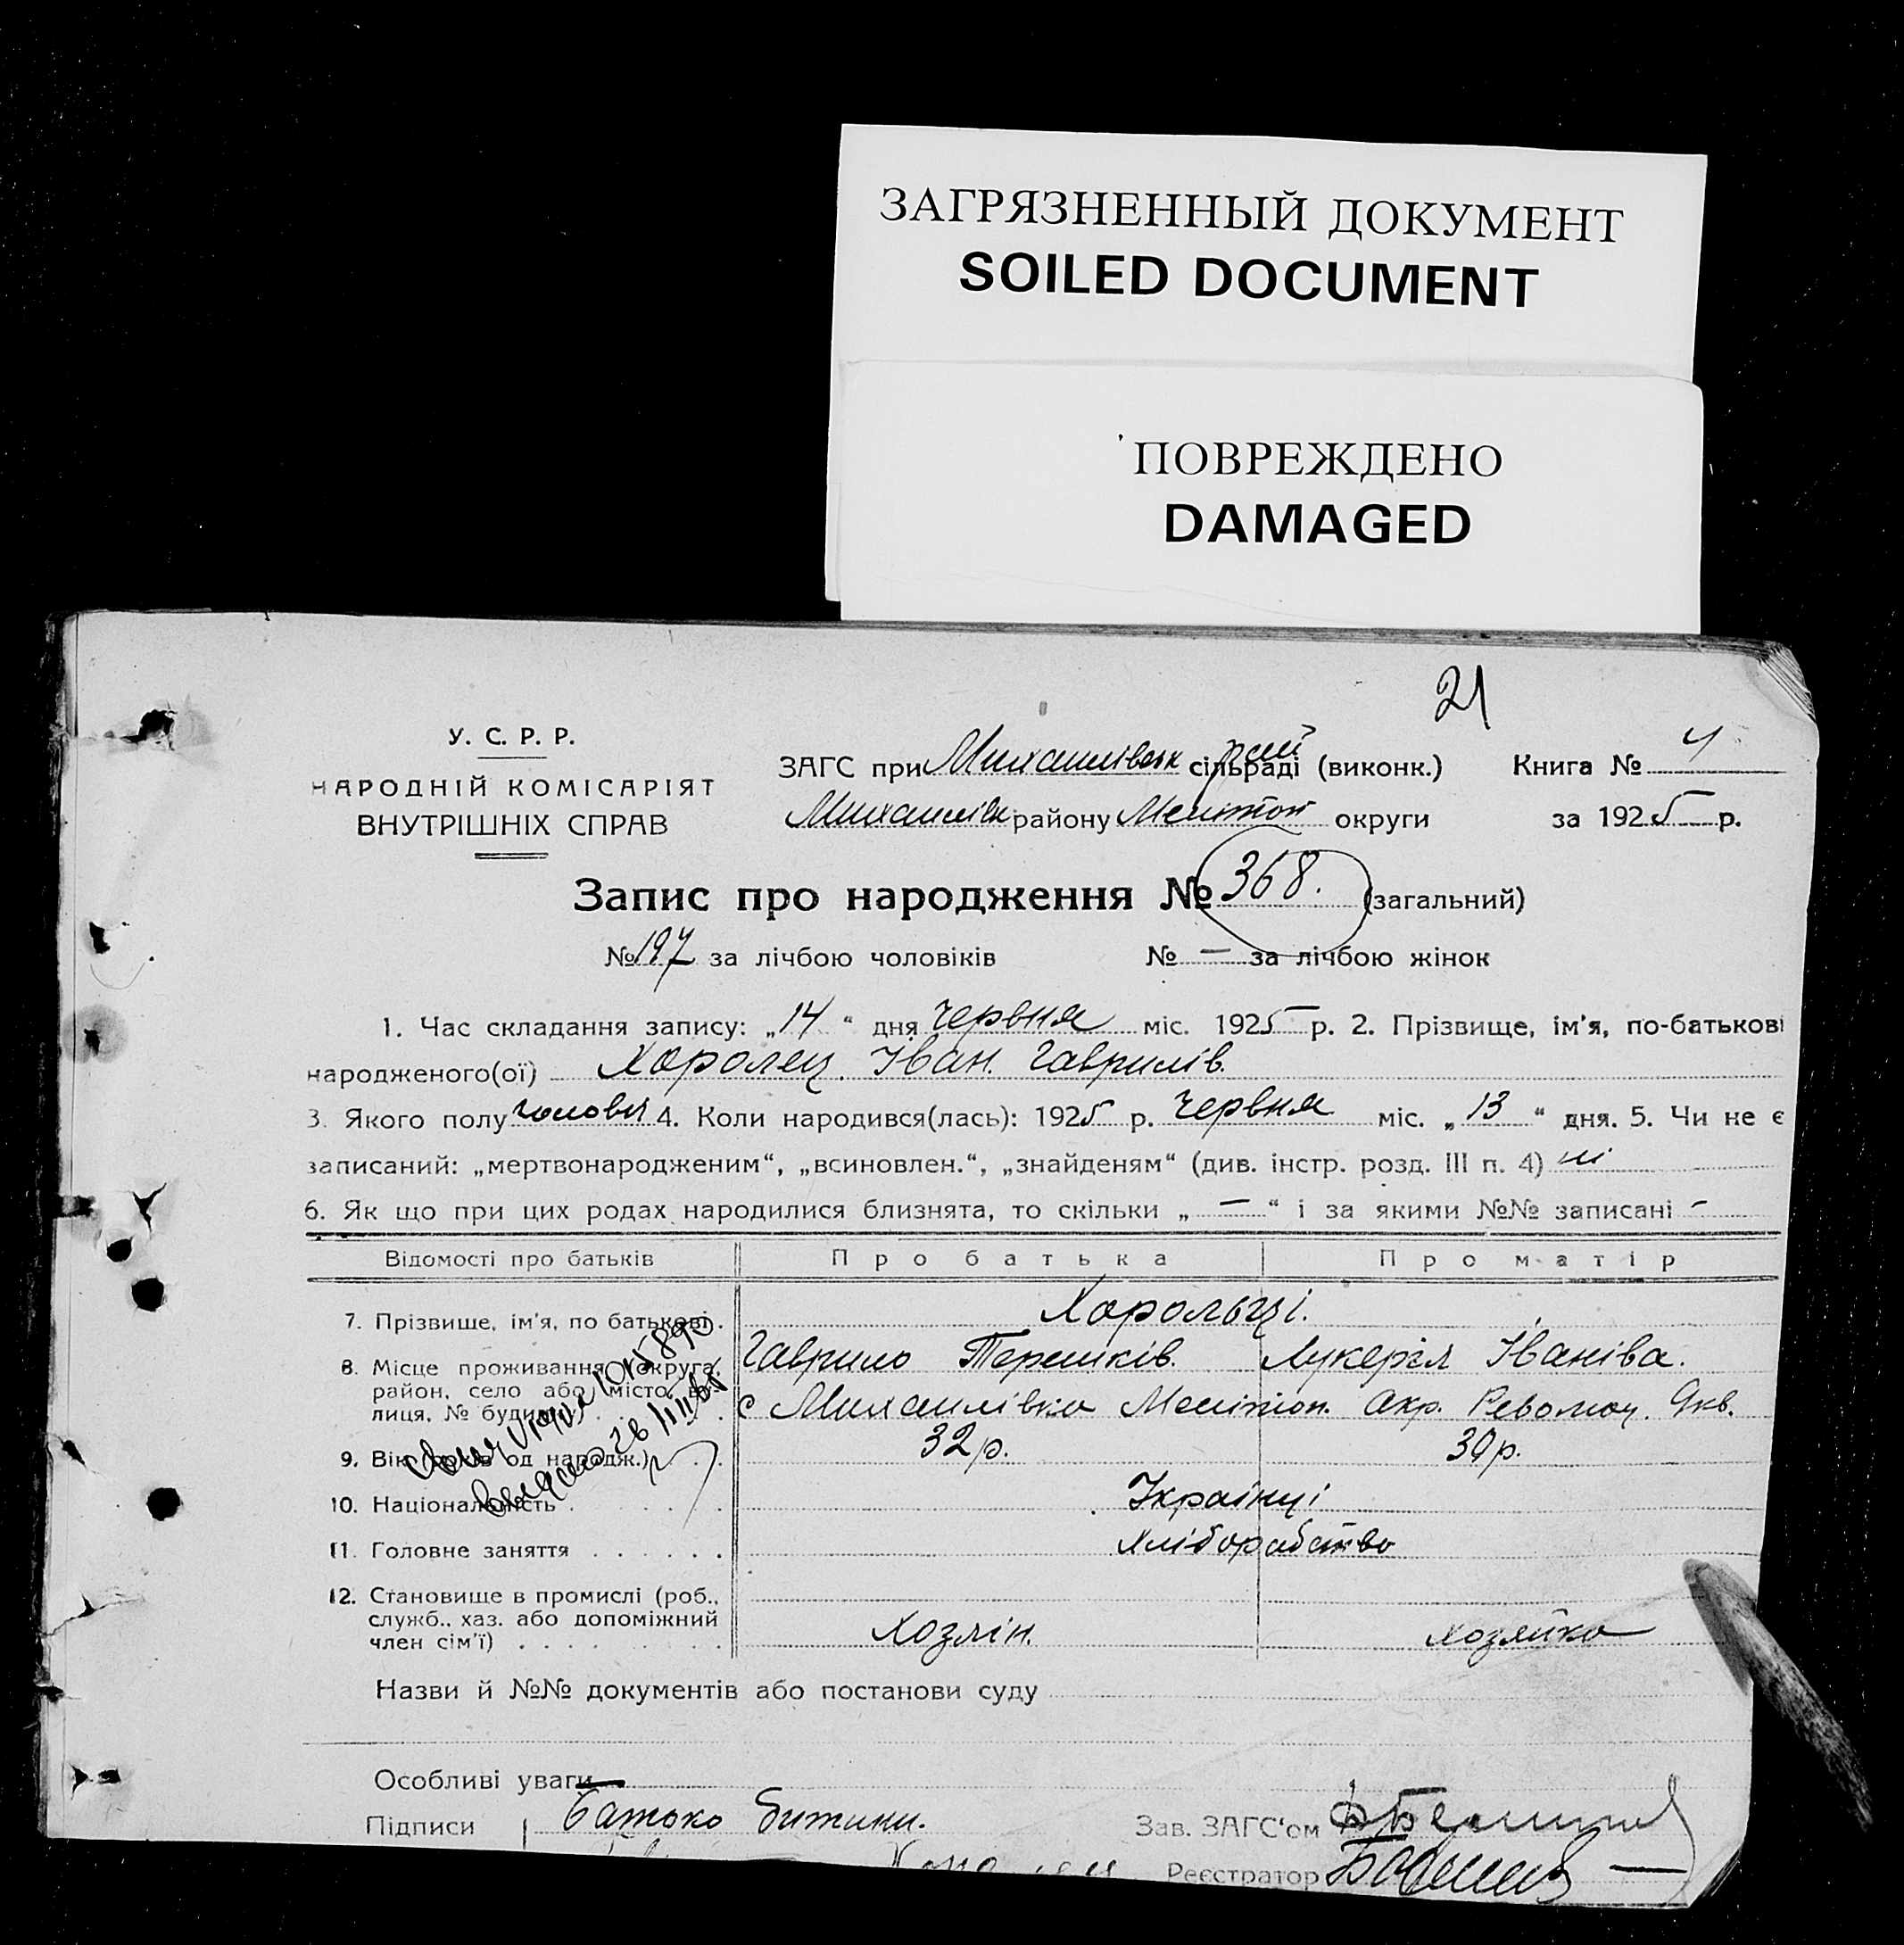 ЗАГРЯЗНЕННЫЙ ДОКУМЕНТ
SOILED DOCUMENT
ПОВРЕЖДЕНО
DAMAGED
21
У. С. Р. Р.
НАРОДНІЙ КОМІСАРІЯТ
ВНУТРІШНІХ СПРАВ
ЗАГС при Михайлівськ сільраді (виконк.) Книга № 4
Михайлів району Мелітоп округи за 1925 р.
Запис про народження № 368. (загальний)
№ 197 за лічбою чоловіків № — за лічбою жінок
1. Час складання запису: „14“ дня червня міс. 1925 р. 2. Прізвище, ім'я, по-батькові
народженого(ої) Хоролец. Іван. Гаврилів.
3. Якого полу чоловіч 4. Коли народився(лась): 1925 р. Червня міс. „13“ дня. 5. Чи не є
записаний: „мертвонародженим“, „всиновлен.“, „знайденям“ (див. інстр. розд. III п. 4) ні
6. Як що при цих родах народилися близнята, то скільки „—“ і за якими №№ записані -
Відомості про батьків Про батька Про матір
7. Прізвише, ім'я, по батькові. Хорольці.
Гаврило Лукерія Іванівa.
8. Місце проживання (округа,
район, село або місто, ву-
лиця, № будинку) с Михайлівка Меліtiоп. Окр.
9. Вік (років од народж.) 32 р. 30 р.
10. Національність Українці
11. Головне заняття Хліборобство
12. Становище в промислі (роб.,
служб., хаз. або допоміжний
член сім'ї) Хозяін. хозяйка
Назви й №№ документів або постанови суду
Особливі уваги
Підписи Батько дитини. Зав. ЗАГС'ом
Реєстратор